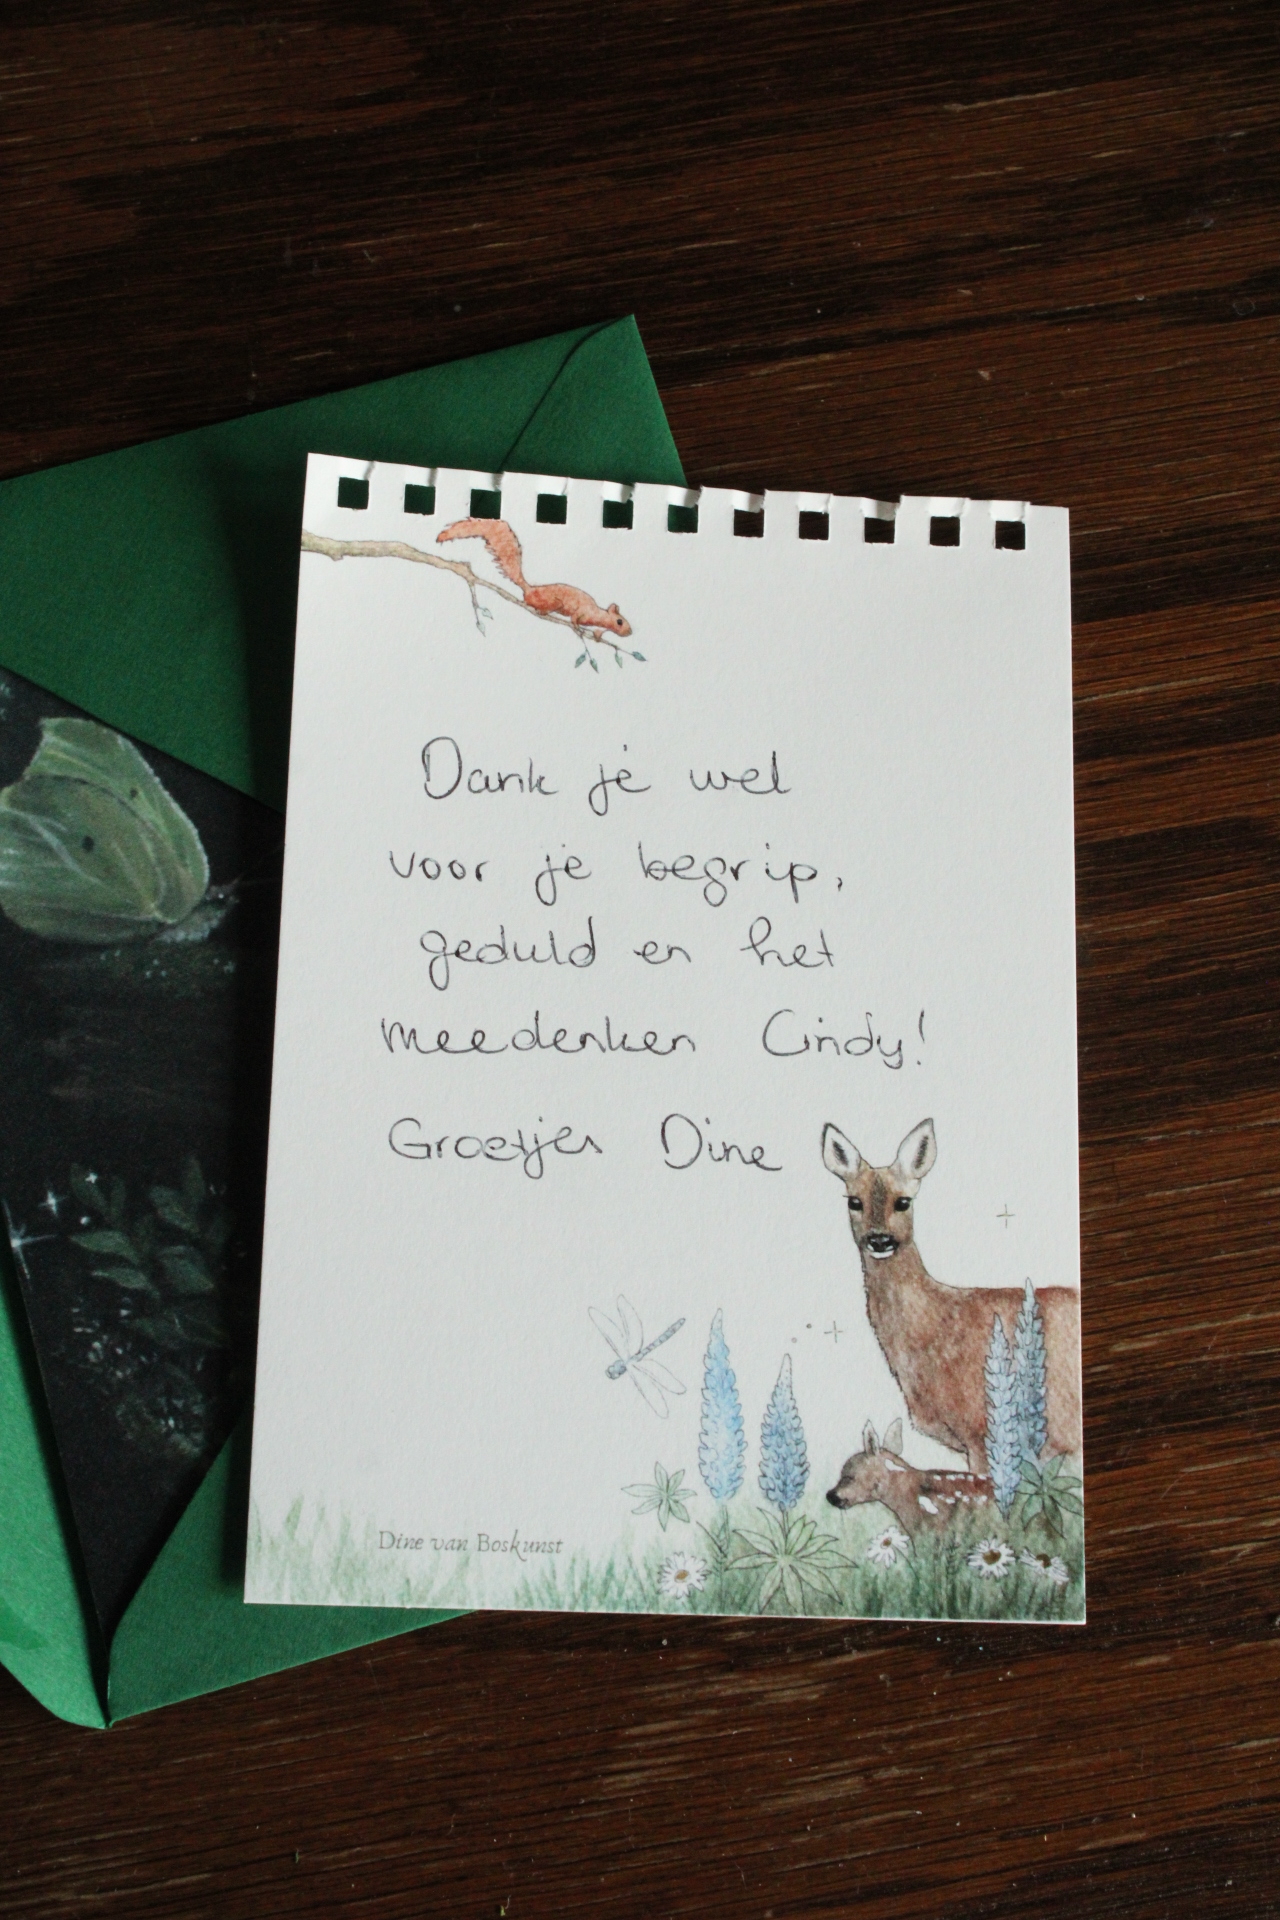 Dank je wel
voor je begrip,
geduld en het
meedenken Cindy!
Groetjes Dine
Dine van Boskunst